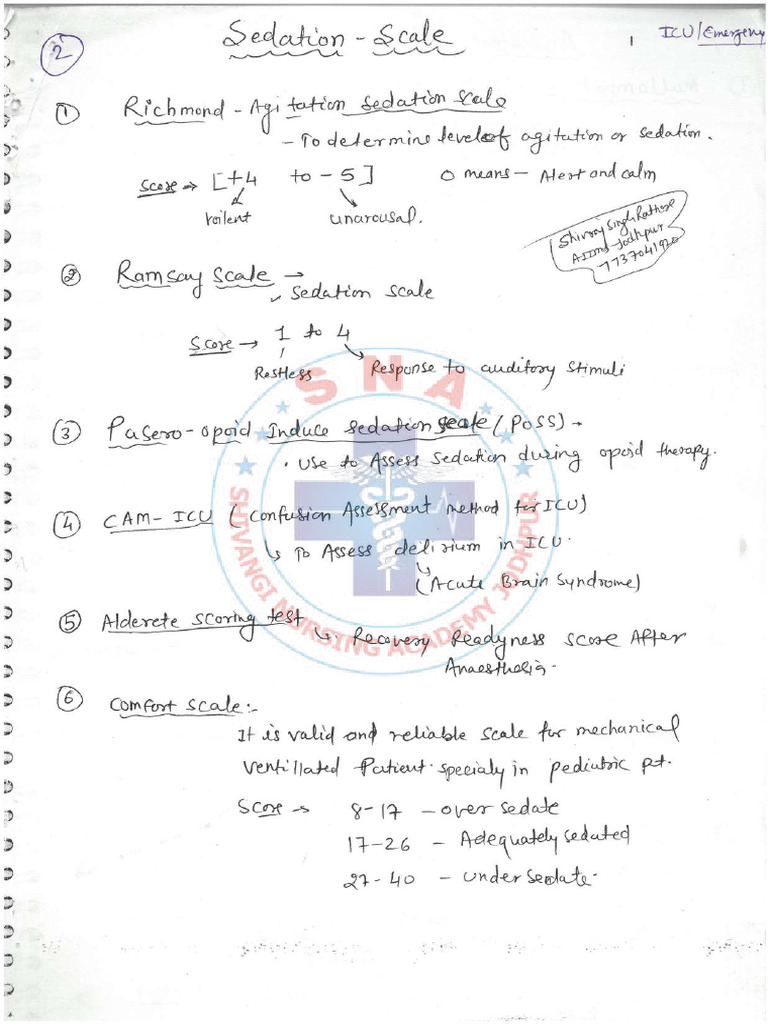 2
Sedation - Scale
1
ICU/Emergency
① Richmond - Agitation sedation scale
- To determine level of agitation or sedation.
Score → [+4 to -5] 0 means - Alert and calm
voilent unarousal.
Shivraj Singh Rathore
AIIMS Jodhpur
7737041920
② Ramsay scale →
sedation scale
Score → 1 to 4
Restless Response to auditory stimuli
③ Pasero-opoid Induce sedation scale (POSS) →
. Use to Assess sedation during opoid therapy.
④ CAM-ICU (Confusion Assessment method for ICU)
↳ To Assess delirium in ICU.
(Acute Brain Syndrome)
⑤ Alderete scoring test
↳ Recovery Readyness score After
Anaesthesia.
⑥ Comfort scale:-
It is valid and reliable scale for mechanical
ventillated Patient specialy in pediatric pt.
Score → 8-17 - over sedate
17-26 - Adequately sedated
27-40 - under sedate.
SNA
SHIVANGI NURSING ACADEMY JODHPUR